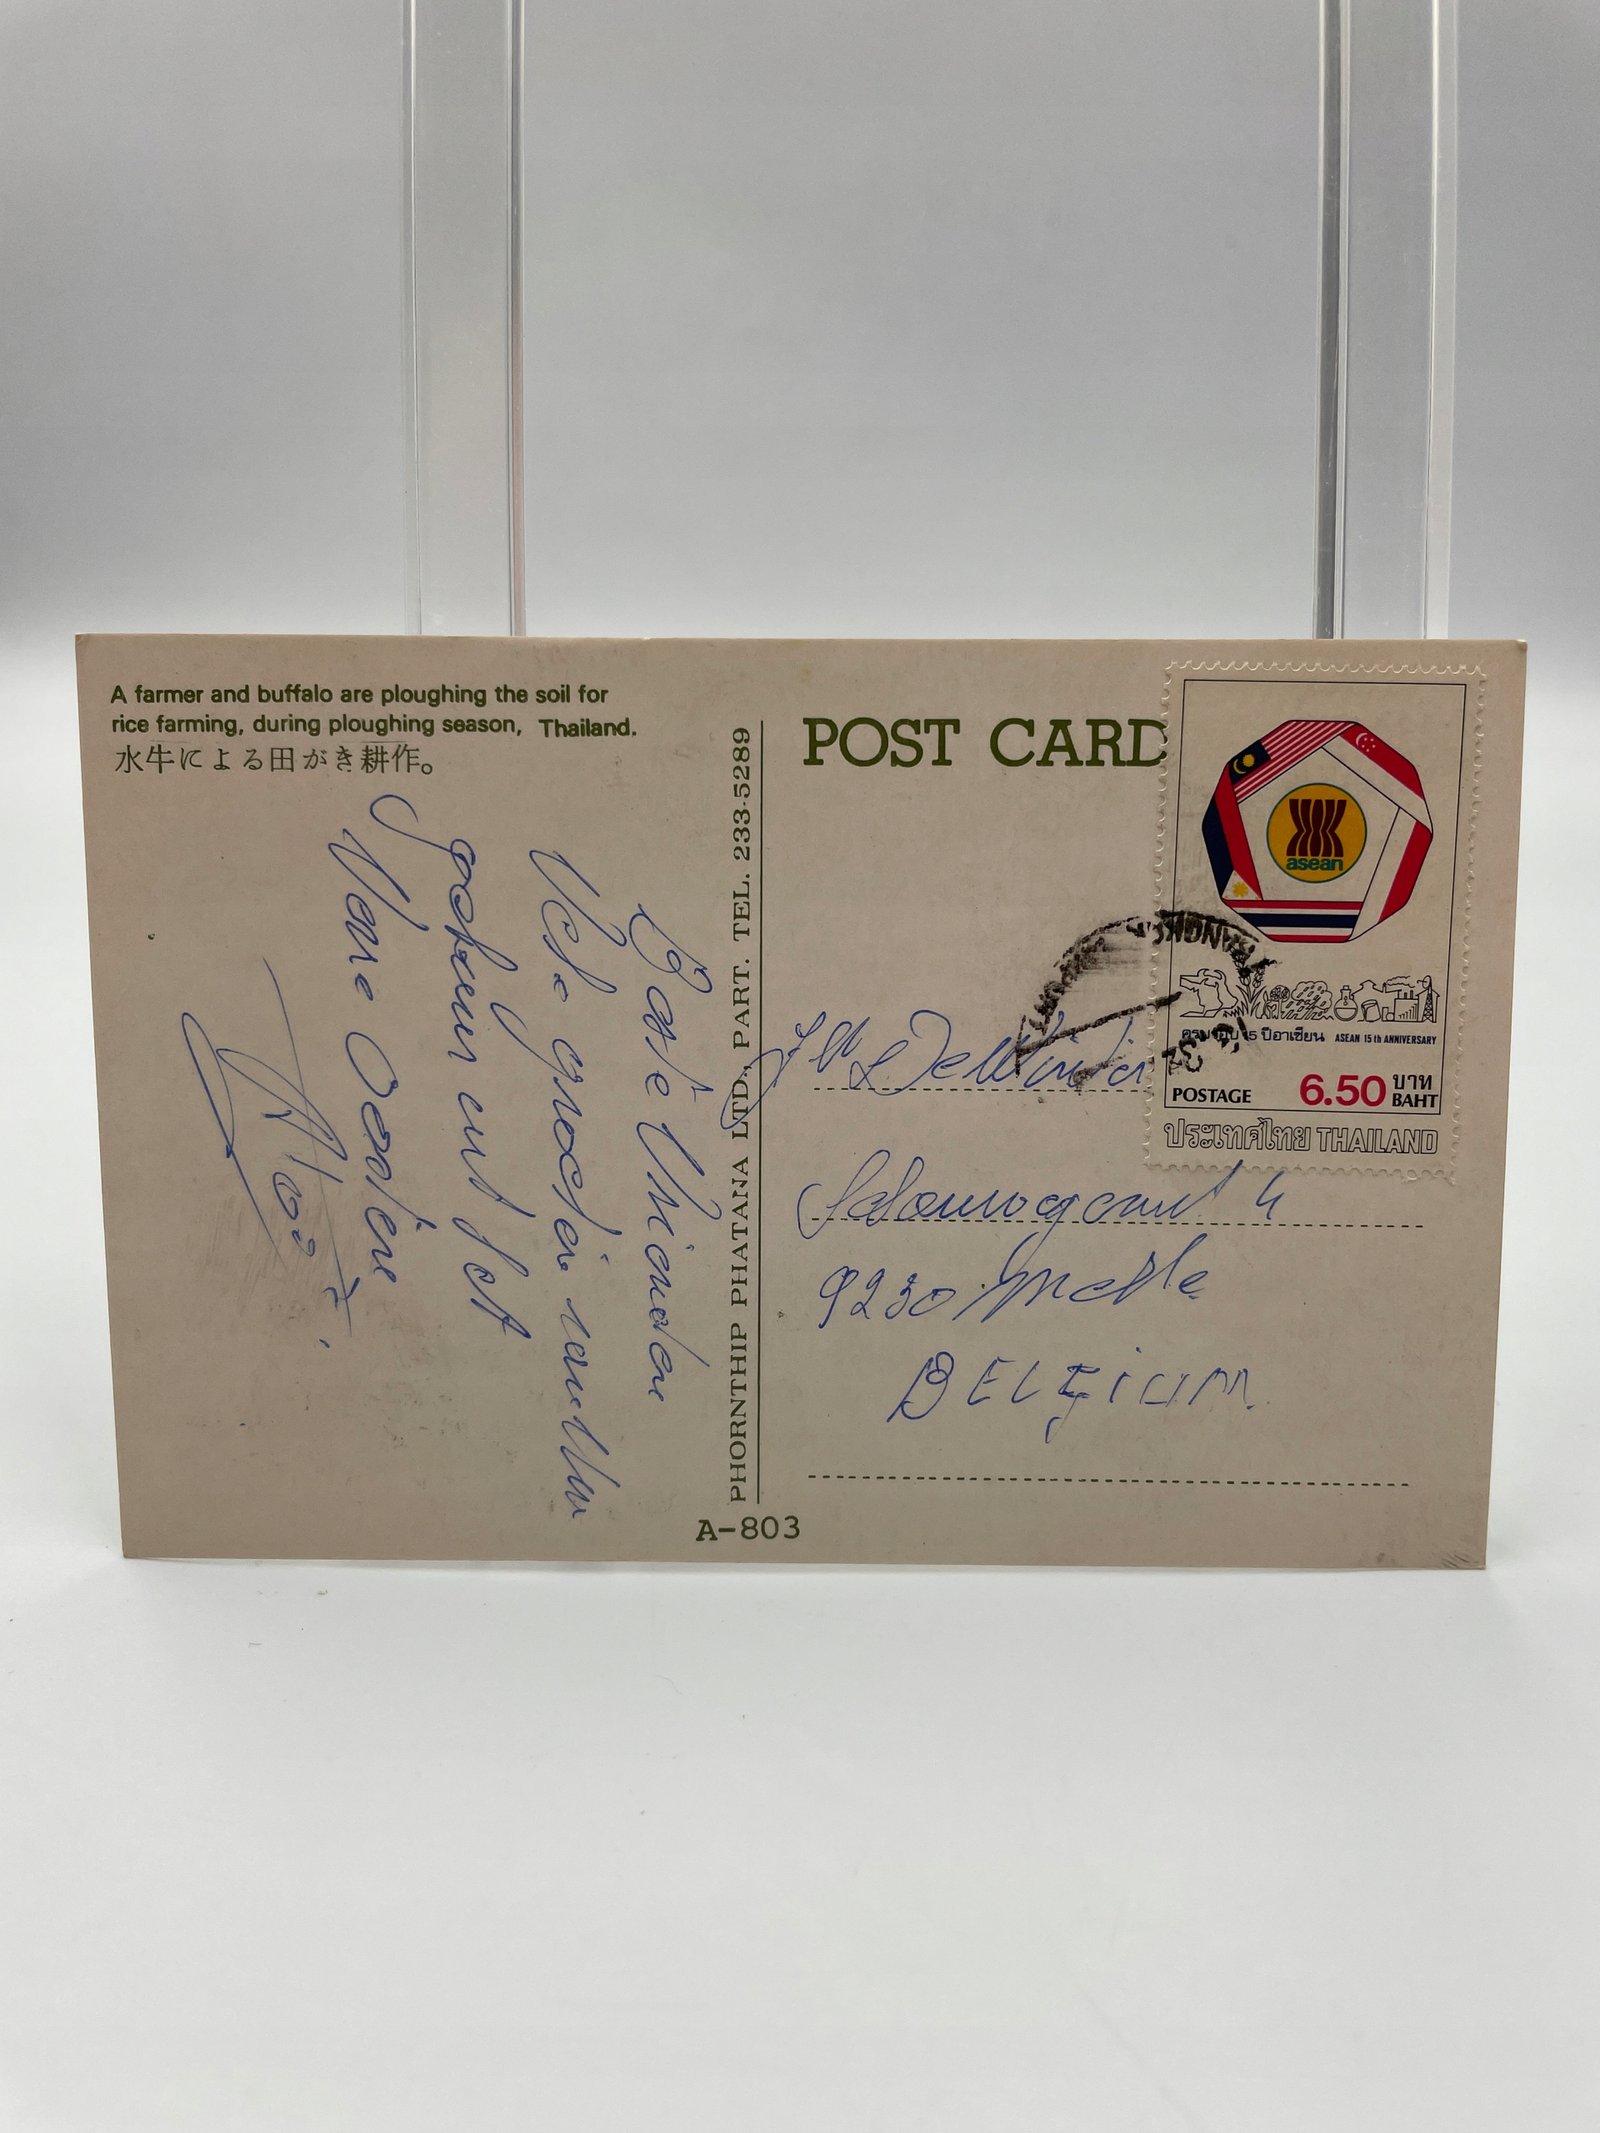 A farmer and buffalo are ploughing the soil for
rice farming, during ploughing season, Thailand.
水牛による田がき耕作。
Beste Vrienden
Vele groeten vanuit
het
Verre Oosten
PHORNTHIP PHATANA LTD., PART. TEL. 233-5289
A-803
POST CARD
asean
ครบรอบ 15 ปีอาเซียน ASEAN 15th ANNIVERSARY
POSTAGE 6.50 บาท
BAHT
ประเทศไทย THAILAND
4
9230 Melle
BELGIUM